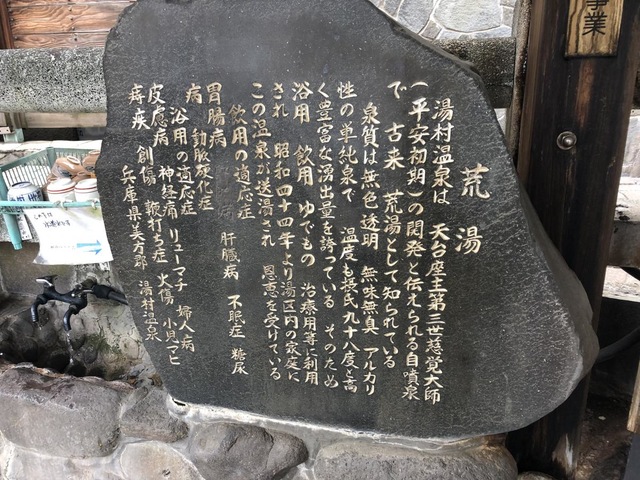 荒湯
湯村温泉は 天台座主第三世慈覚大師
(平安初期)の開発と伝えられる自噴泉
で 古来 荒湯として知られている
泉質は無色透明 無味無臭 アルカリ
性の単純泉で 温度も摂氏九十八度と高
く豊富な湧出量を誇っている そのため
浴用 飲用 ゆでもの 治療用等に利用
され 昭和四十四年より湯区内の家庭に
この温泉が送湯され 恩恵を受けている
飲用の適応症
胃腸病 肝臓病 不眠症 糖尿
病 動脈硬化症
浴用の適応症
皮膚病 神経痛 リューマチ 婦人病
痔疾 創傷 鞭打ち症 火傷 小児マヒ
兵庫県美方郡 湯村温泉
事業